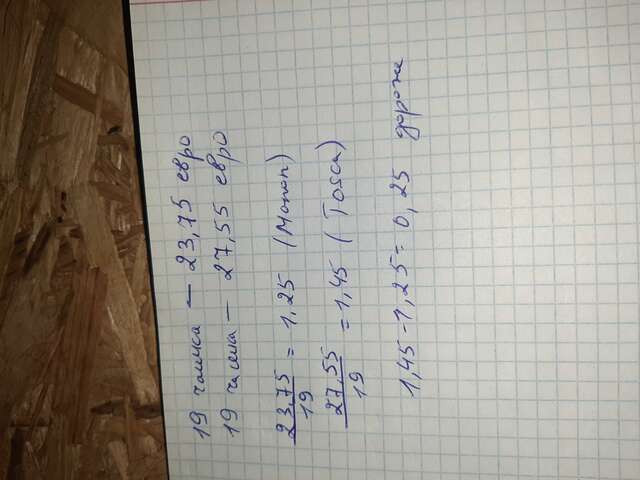 19 чашка — 23,75 евро
19 чашка — 27,55 евро
23,75/19 = 1,25 (Manon)
27,55/19 = 1,45 (Tosca)
1,45 - 1,25 = 0,25 дороже